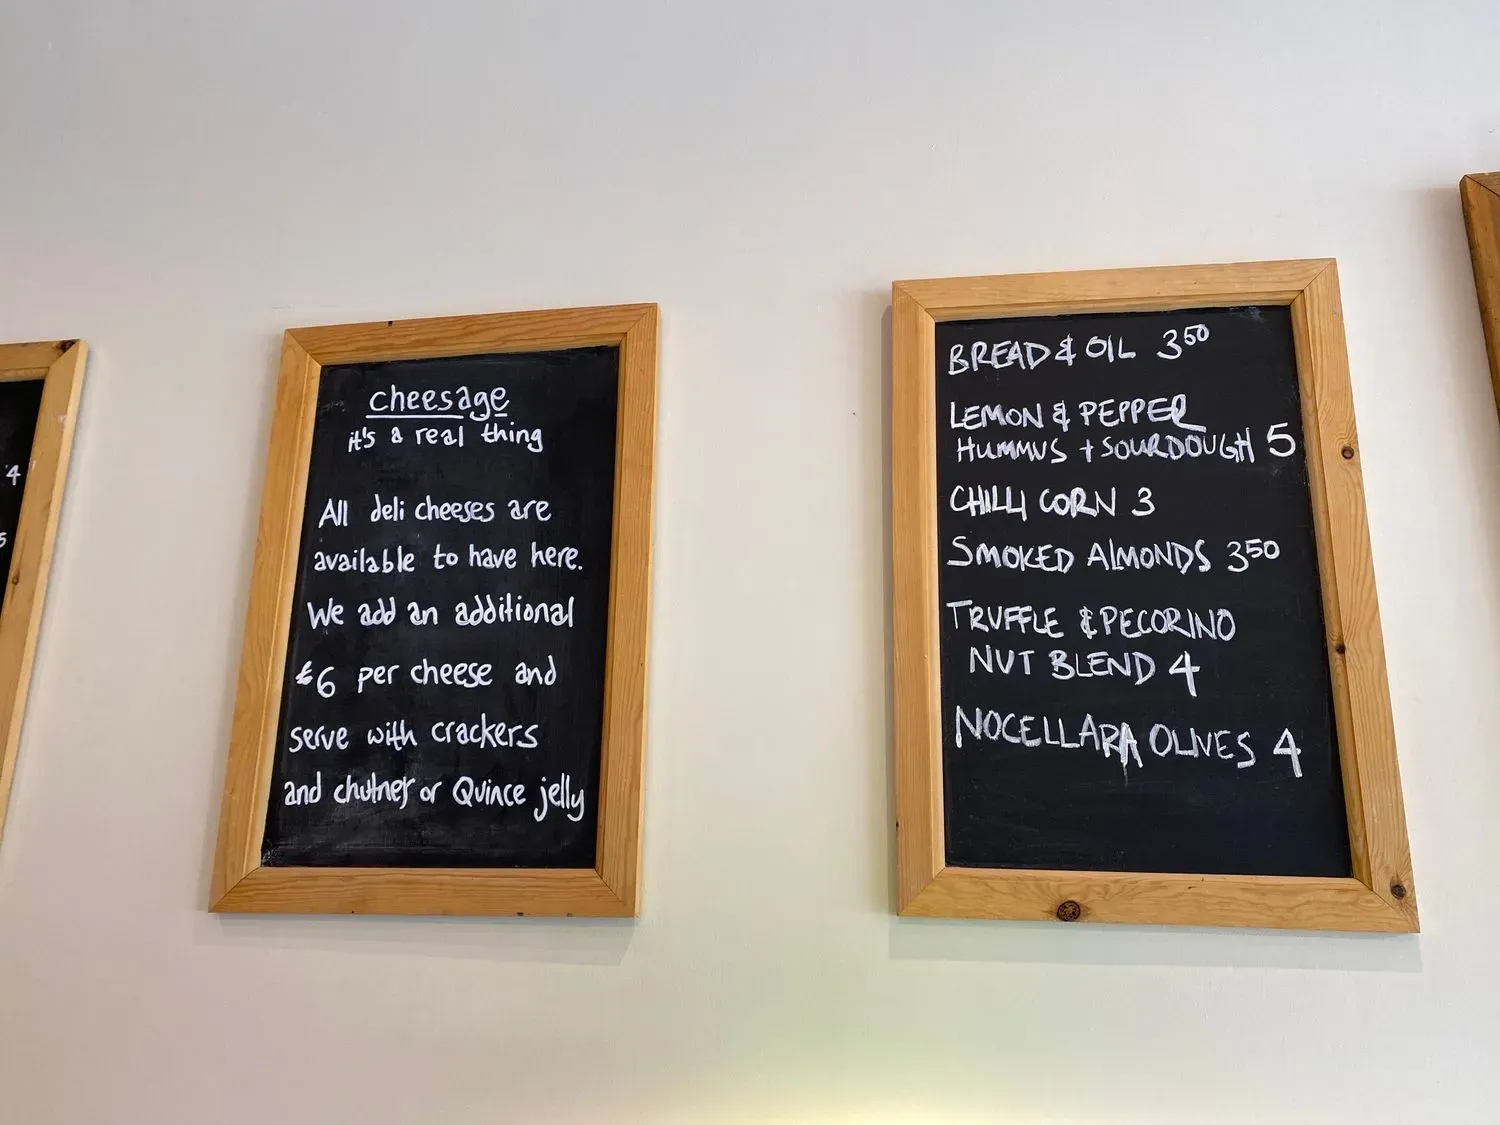 4
5
cheesage
it's a real thing
All deli cheeses are
available to have here.
We add an additional
£6 per cheese and
serve with crackers
and chutney or Quince jelly
BREAD & OIL 3⁵⁰
LEMON & PEPPER
HUMMUS + SOURDOUGH 5
CHILLI CORN 3
SMOKED ALMONDS 3⁵⁰
TRUFFLE & PECORINO
NUT BLEND 4
NOCELLARA OLIVES 4